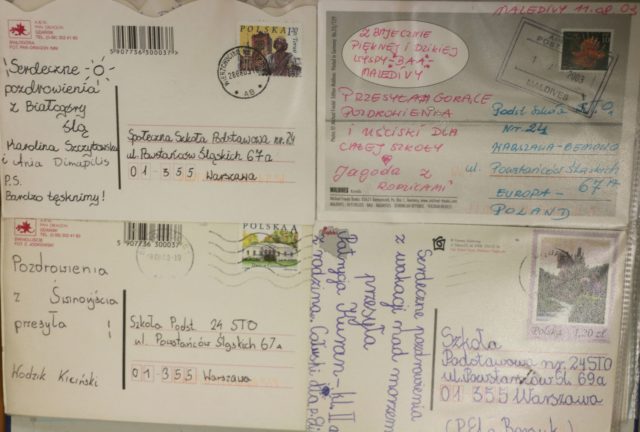 5 907736 300037
POLSKA
Serdeczne
pozdrowienia
z Białogóry
ślą
Karolina Szczytowska
i Ania
P.S.
Bardzo tęsknimy!
Społeczna Szkoła Podstawowa nr. 24
ul. Powstańców Śląskich 67a
01-355 Warszawa
MALEDIVY 11.08.03
Z BAJECZNIE
PIĘKNEJ I DZIKIEJ
WYSPY "BAA"
MALEDIVY
PRZESYŁAM GORĄCE
POZDROWIEŃKA
I UŚCISKI DLA
CAŁEJ SZKOŁY
Jagoda z
RODZICAMI
MALDIVES
Podst. Szkoła STO
Nr. 24
WARSZAWA-BEMOWO
ul. POWSTAŃCÓW ŚLĄSKICH
67A
EUROPA-
POLAND
5 907736 300037
POLSKA
Pozdrowienia
z Świnoujścia
przesyła
Szkoła Podst. 24 STO
ul. Powstańców Śląskich 67a
01-355 Warszawa
Serdeczne pozdrowienia
z wakacji nad morzem
przesyła
Patrycja
z rodzinką
Polska 1,20 zł
Szkoła
Podstawowa nr. 24STO
ul. Powstańców Śl. 69a
01 355 Warszawa